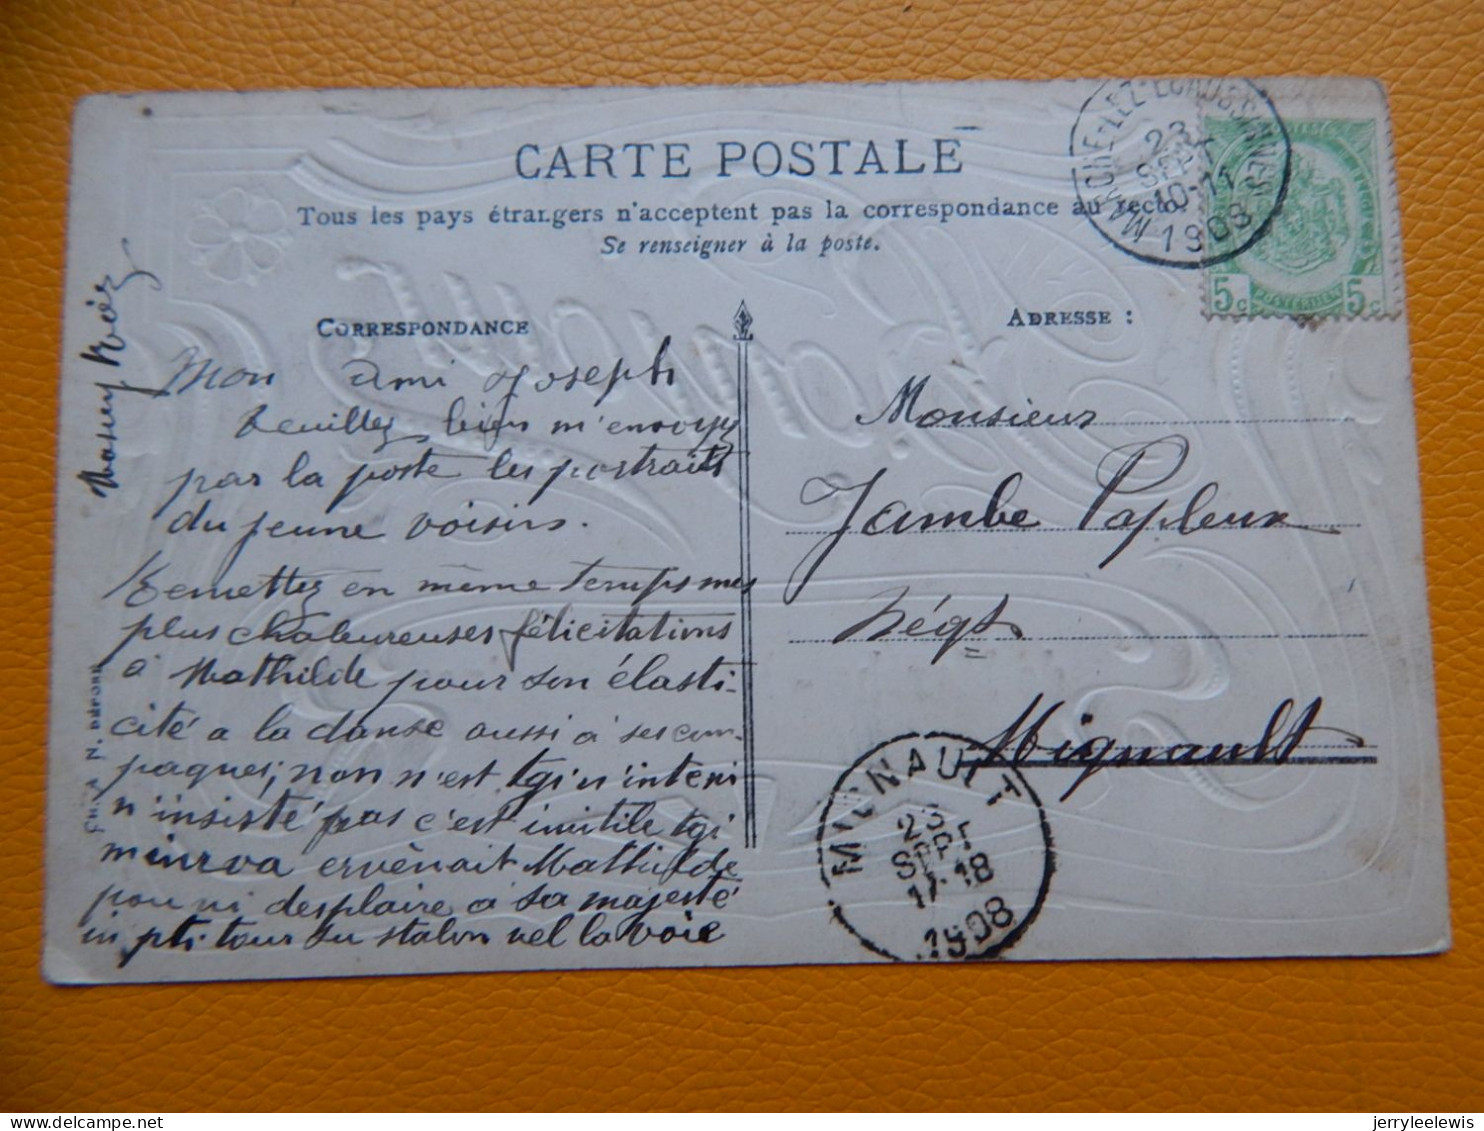 CARTE POSTALE
Tous les pays étrangers n'acceptent pas la correspondance au recto.
Se renseigner à la poste.
MARCHE-LEZ-ECAUSSINNES
23
SEPT
10-11
1908
5c POSTERIJEN 5c
CORRESPONDANCE
ADRESSE :
Mon ami Joseph
Veuillez bien m'envoyez
par la poste les portraits
du jeune voisin.
Remettez en même temps mes
plus chaleureuses félicitations
à Mathilde pour son élasti-
cité a la danse aussi à ses com-
pagnes; non n'est tgi n'inteni
n'insisté pas c'est inutile tgi
minrva ervènait Mathilde
pou ni desplaire a sa majesté
in pti tour su stalon vel la voie
Monsieur
Jambe Papleux
Négt
Mignault
MIGNAULT
23
SEPT
17-18
1908
N. DÉPOSÉ
jerryleelewis